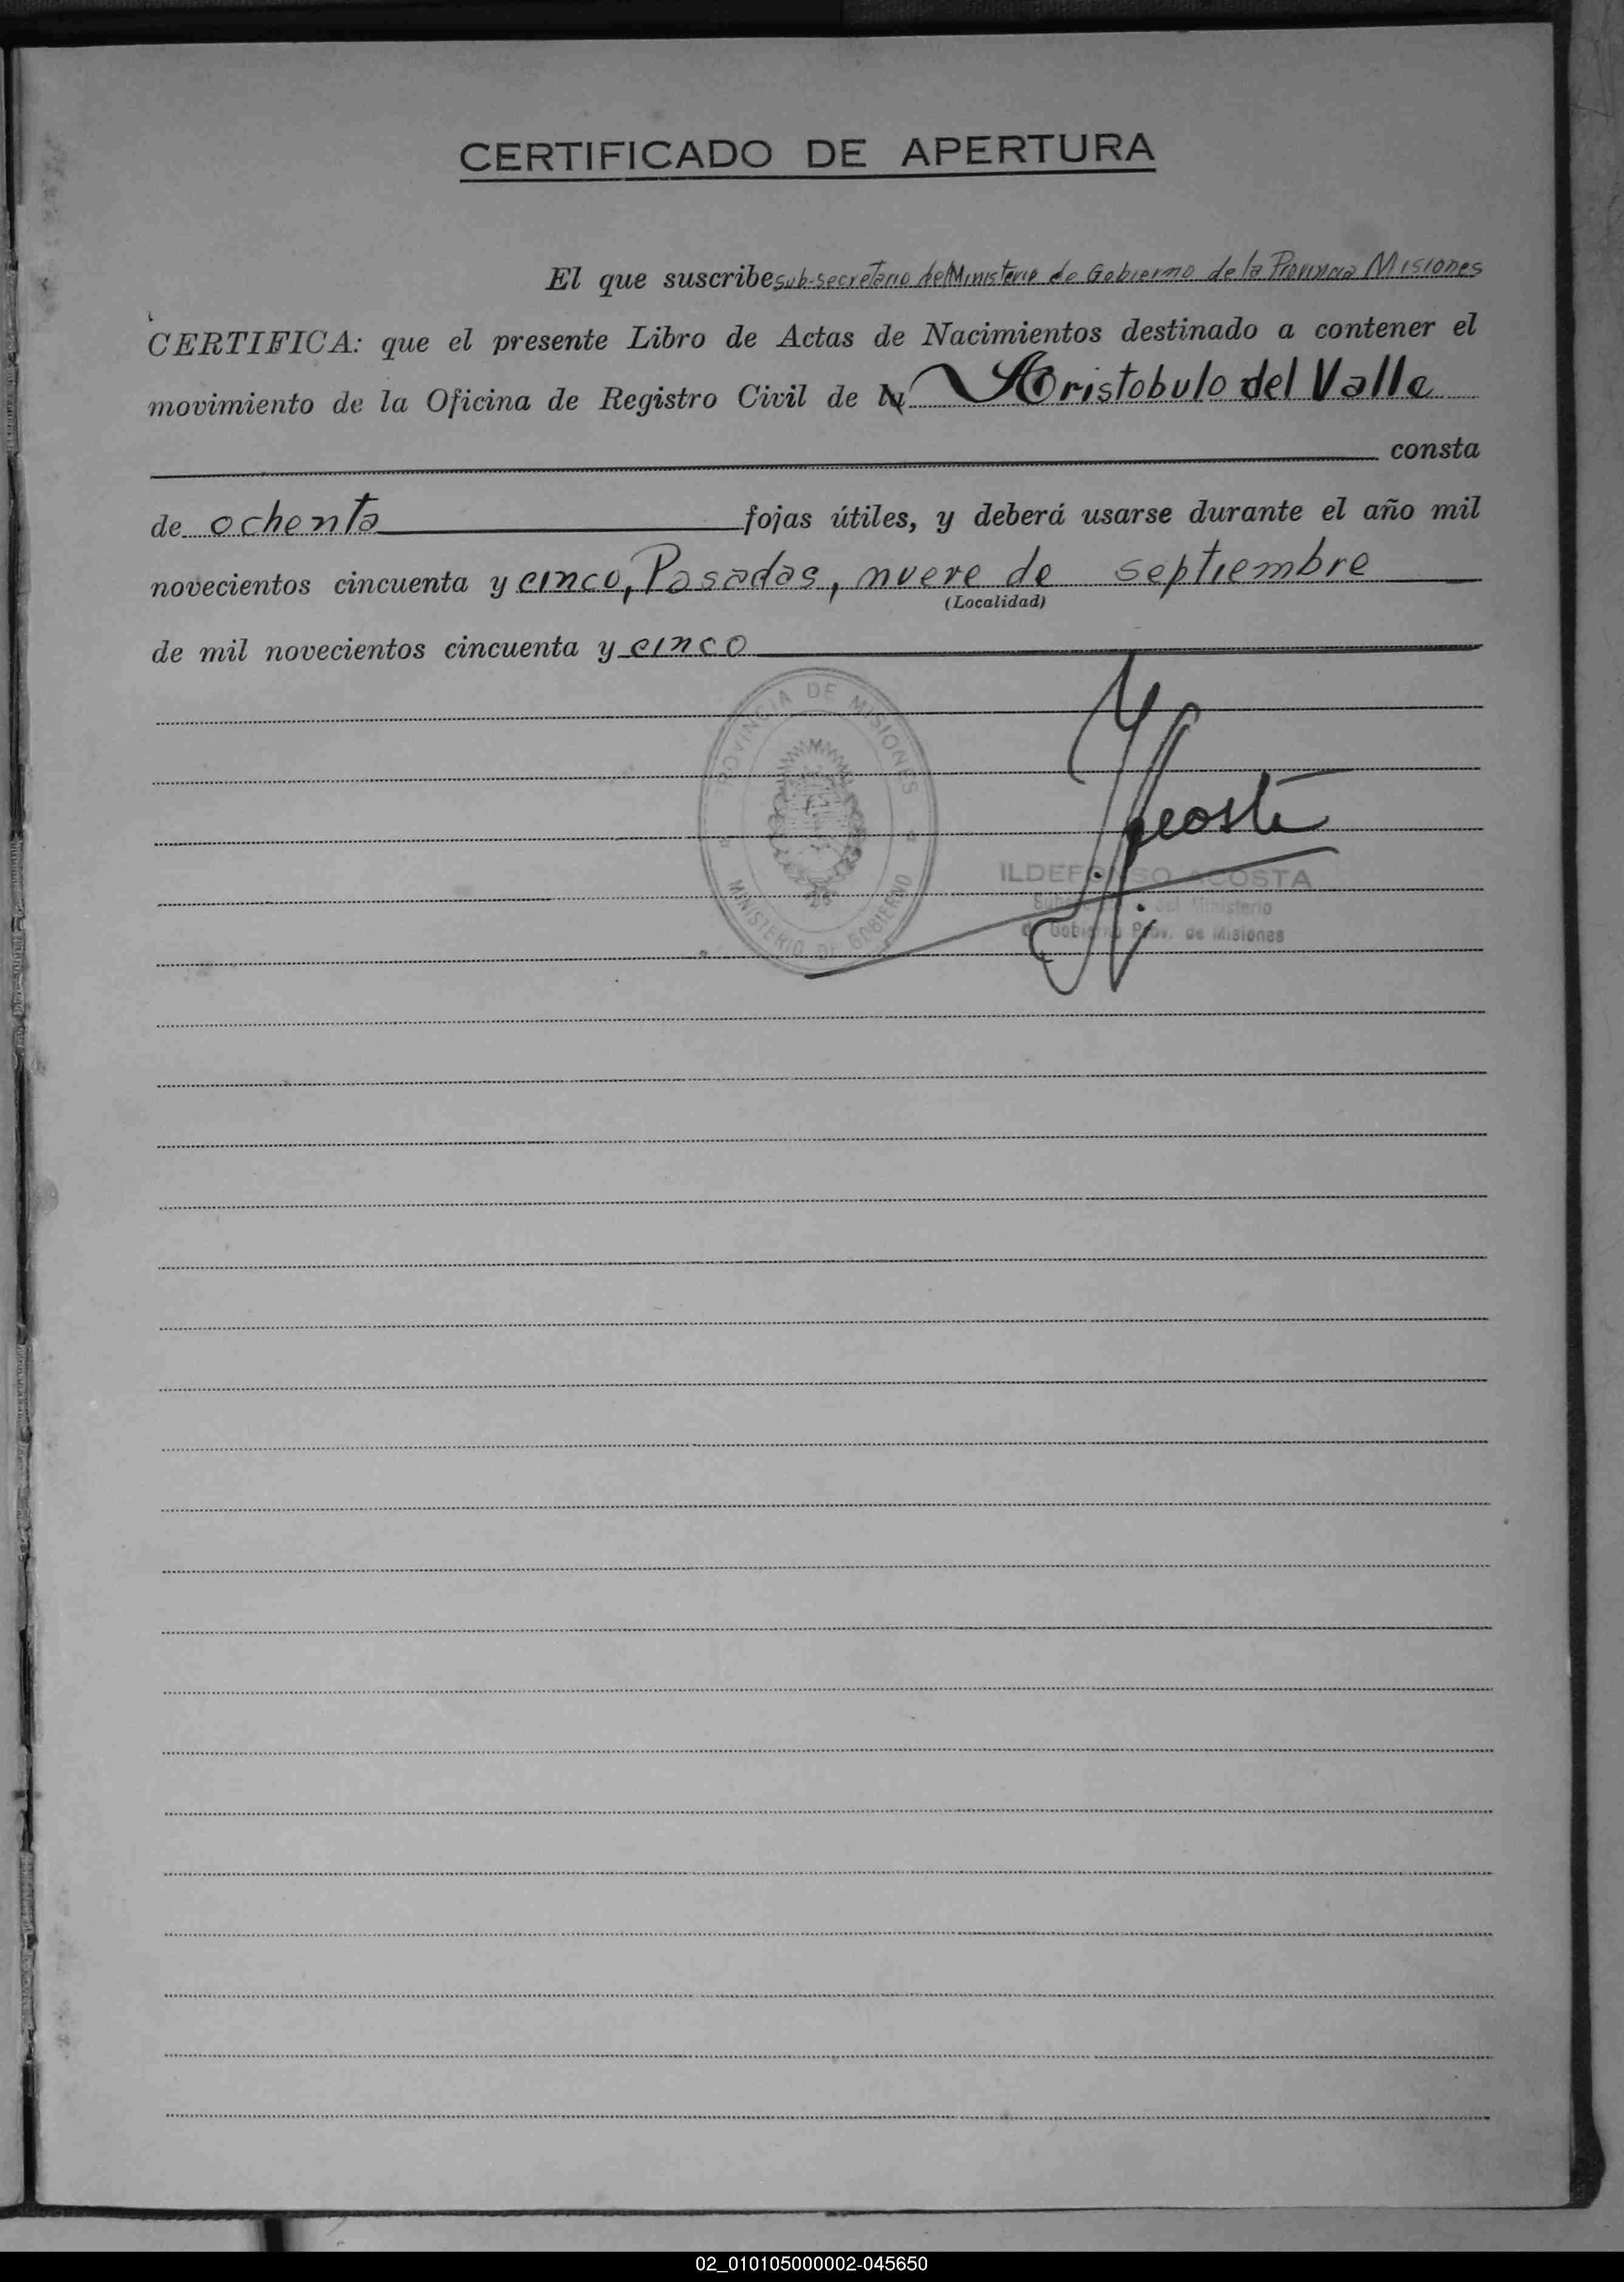 CERTIFICADO DE APERTURA
El que suscribe sub-secretario del Ministerio de Gobierno de la Provincia Misiones
CERTIFICA: que el presente Libro de Actas de Nacimientos destinado a contener el
movimiento de la Oficina de Registro Civil de Aristobulo del Valle
consta
de ochenta fojas útiles, y deberá usarse durante el año mil
novecientos cincuenta y cinco, Posadas, nueve de septiembre
(Localidad)
de mil novecientos cincuenta y cinco
PROVINCIA DE MISIONES
MINISTERIO DE GOBIERNO
Acosta
ILDEFONSO ACOSTA
del Ministerio
de Gobierno Prov. de Misiones
02_010105000002-045650